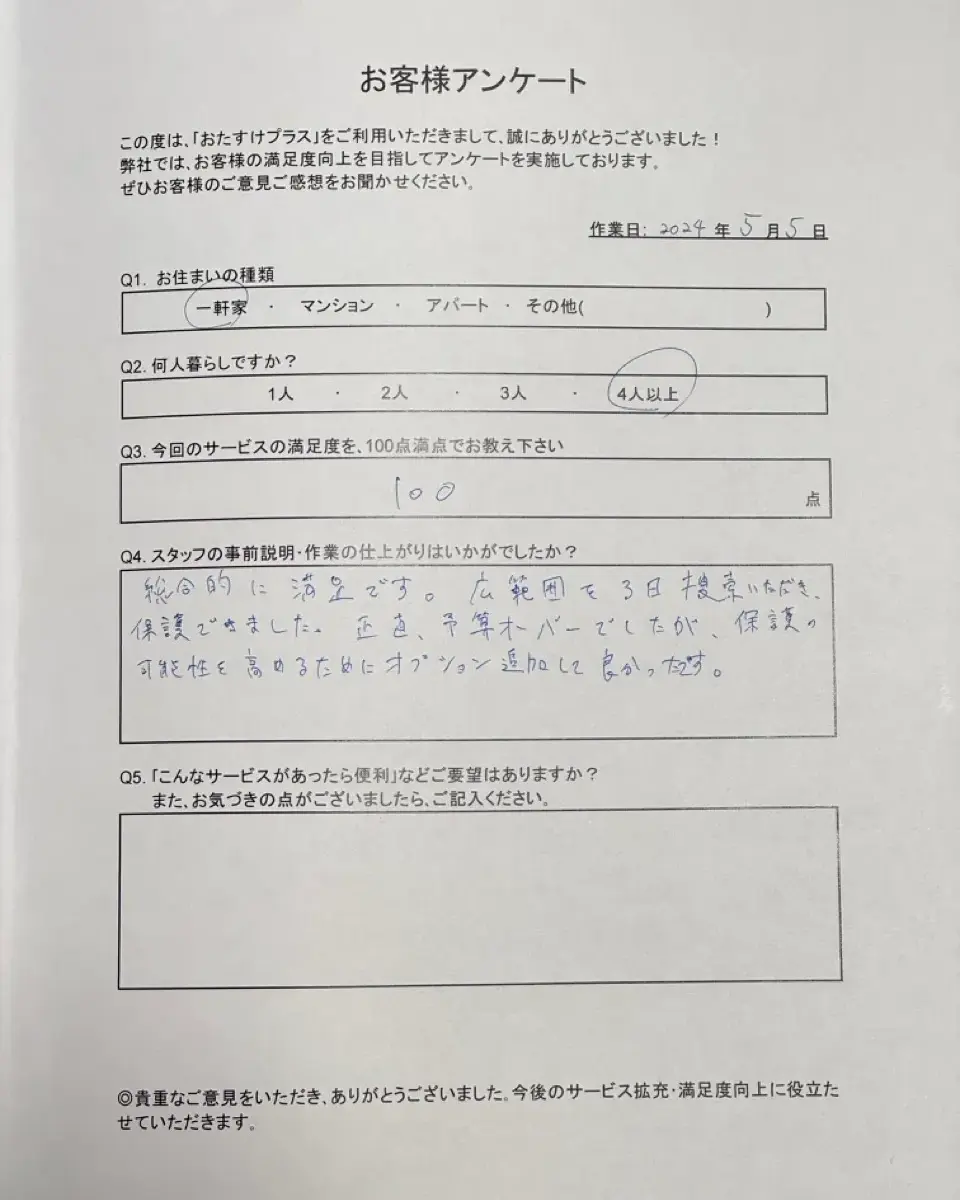 お客様アンケート
この度は、「おたすけプラス」をご利用いただきまして、誠にありがとうございました！
弊社では、お客様の満足度向上を目指してアンケートを実施しております。
ぜひお客様のご意見ご感想をお聞かせください。
作業日: 2024 年 5 月 5 日
Q1. お住まいの種類
一軒家 ・ マンション ・ アパート ・ その他( )
Q2. 何人暮らしですか？
1人 ・ 2人 ・ 3人 ・ 4人以上
Q3. 今回のサービスの満足度を、100点満点でお教え下さい
100 点
Q4. スタッフの事前説明・作業の仕上がりはいかがでしたか？
総合的に満足です。広範囲を3日捜索いただき、
保護できました。正直、予算オーバーでしたが、保護の
可能性を高めるためにオプション追加して良かったです。
Q5. 「こんなサービスがあったら便利」などご要望はありますか？
また、お気づきの点がございましたら、ご記入ください。
◎貴重なご意見をいただき、ありがとうございました。今後のサービス拡充・満足度向上に役立た
せていただきます。